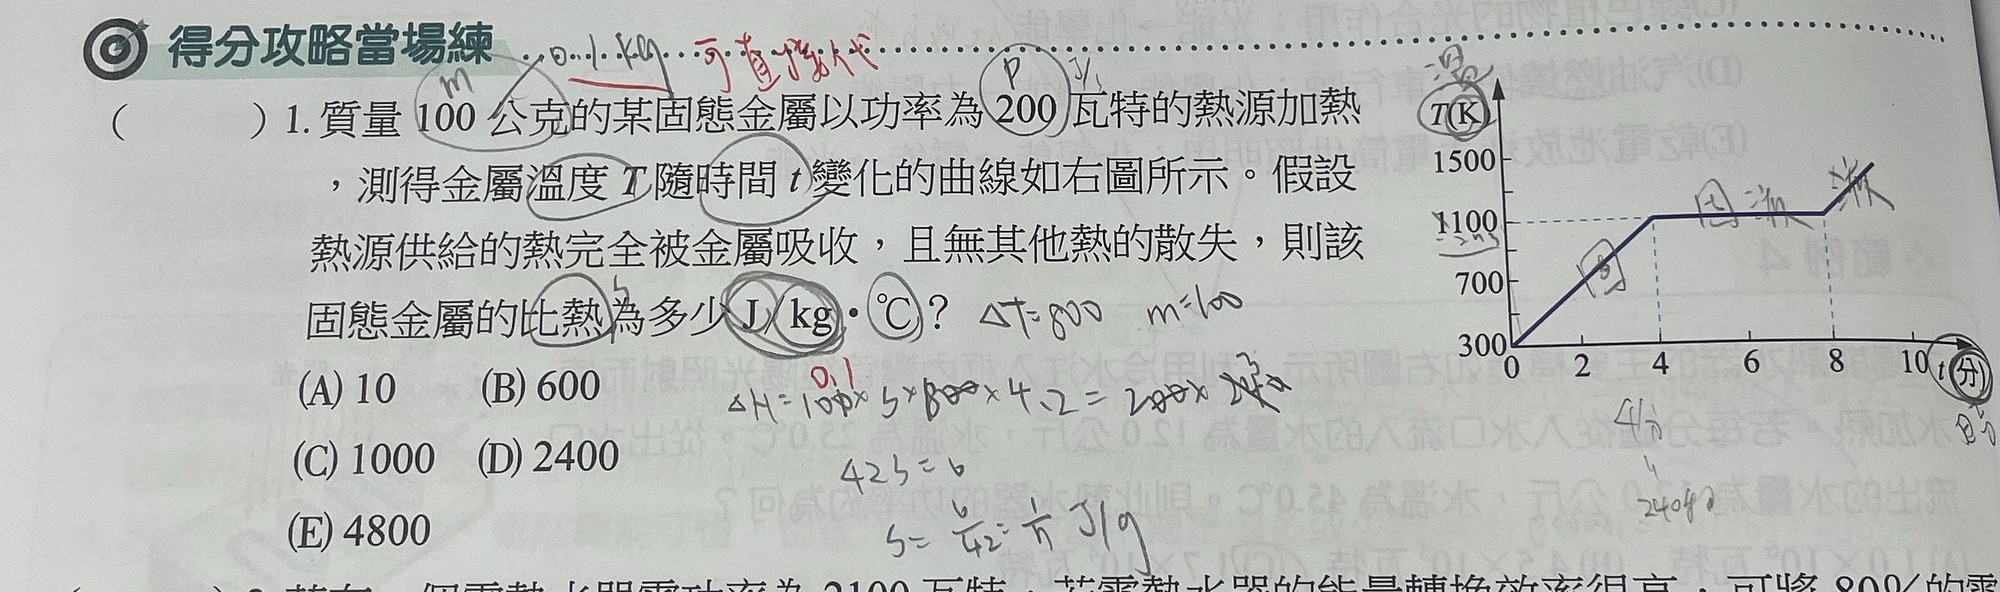 得分攻略當場練
0.1 kg 可直接代
m
P
J/s
( ) 1. 質量 100 公克的某固態金屬以功率為 200 瓦特的熱源加熱
，測得金屬溫度 T 隨時間 t 變化的曲線如右圖所示。假設
熱源供給的熱完全被金屬吸收，且無其他熱的散失，則該
固態金屬的比熱為多少 J/kg・℃？
s
ΔT=800 m=100
(A) 10 (B) 600
(C) 1000 (D) 2400
(E) 4800
0.1
ΔH=100×s×800×4.2=200×240
42s=6
s=6/42=1/7 J/g
T(K)
1500
1100
700
300
0 2 4 6 8 10 t(分)
固
固液
液
4分
240秒
2100 瓦特，若電熱水器的能量轉換效率很高，可將 80%的電